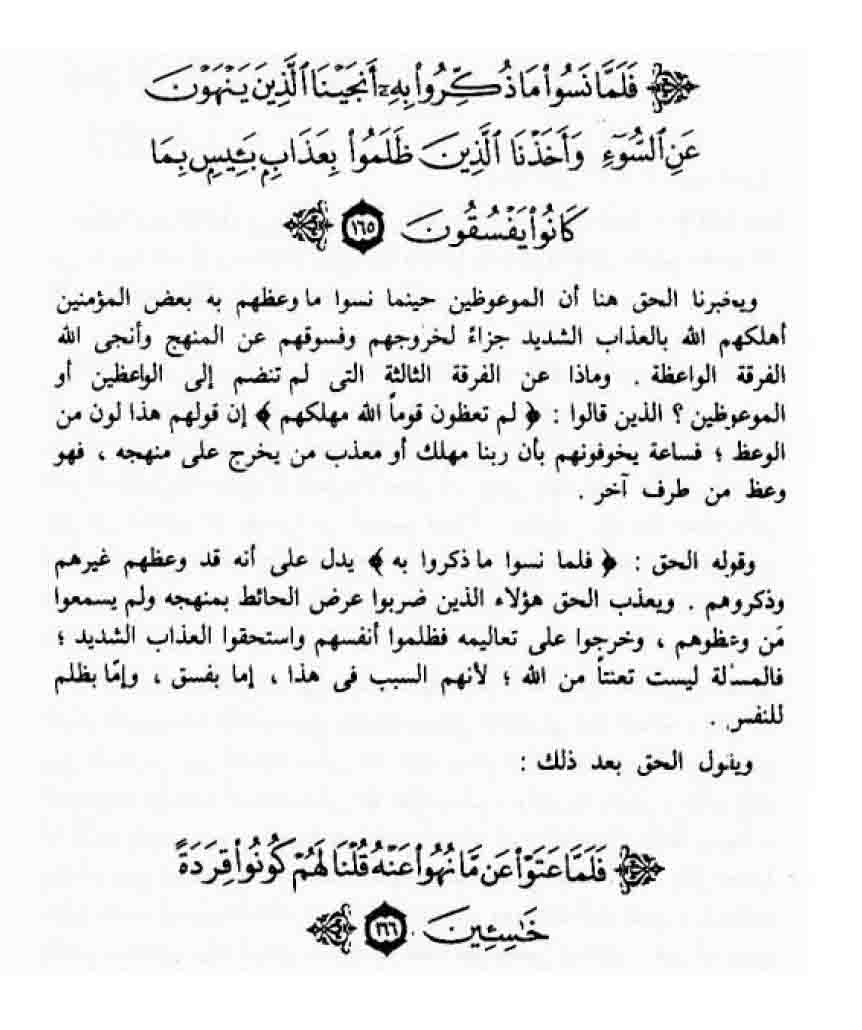 فَلَمَّا نَسُوا۟ مَا ذُكِّرُوا۟ بِهِۦٓ أَنجَيْنَا ٱلَّذِينَ يَنْهَوْنَ
عَنِ ٱلسُّوٓءِ وَأَخَذْنَا ٱلَّذِينَ ظَلَمُوا۟ بِعَذَابٍۭ بَـِٔيسٍۭ بِمَا
كَانُوا۟ يَفْسُقُونَ ١٦٥
ويخبرنا الحق هنا أن الموعوظين حينما نسوا ما وعظهم به بعض المؤمنين
أهلكهم الله بالعذاب الشديد جزاءً لخروجهم وفسوقهم عن المنهج وأنجى الله
الفرقة الواعظة . وماذا عن الفرقة الثالثة التى لم تنضم إلى الواعظين أو
الموعوظين ؟ الذين قالوا : ﴿ لم تعظون قوماً الله مهلكهم ﴾ إن قولهم هذا لون من
الوعظ ؛ فساعة يخوفونهم بأن ربنا مهلك أو معذب من يخرج على منهجه ، فهو
وعظ من طرف آخر .
وقوله الحق : ﴿ فلما نسوا ما ذكروا به ﴾ يدل على أنه قد وعظهم غيرهم
وذكروهم . ويعذب الحق هؤلاء الذين ضربوا عرض الحائط بمنهجه ولم يسمعوا
مَن وعظوهم ، وخرجوا على تعاليمه فظلموا أنفسهم واستحقوا العذاب الشديد ؛
فالمسألة ليست تعنتاً من الله ؛ لأنهم السبب فى هذا ، إما بفسق ، وإمّا بظلم
للنفس .
ويقول الحق بعد ذلك :
فَلَمَّا عَتَوْا۟ عَن مَّا نُهُوا۟ عَنْهُ قُلْنَا لَهُمْ كُونُوا۟ قِرَدَةً
خَـٰسِـِٔينَ ١٦٦